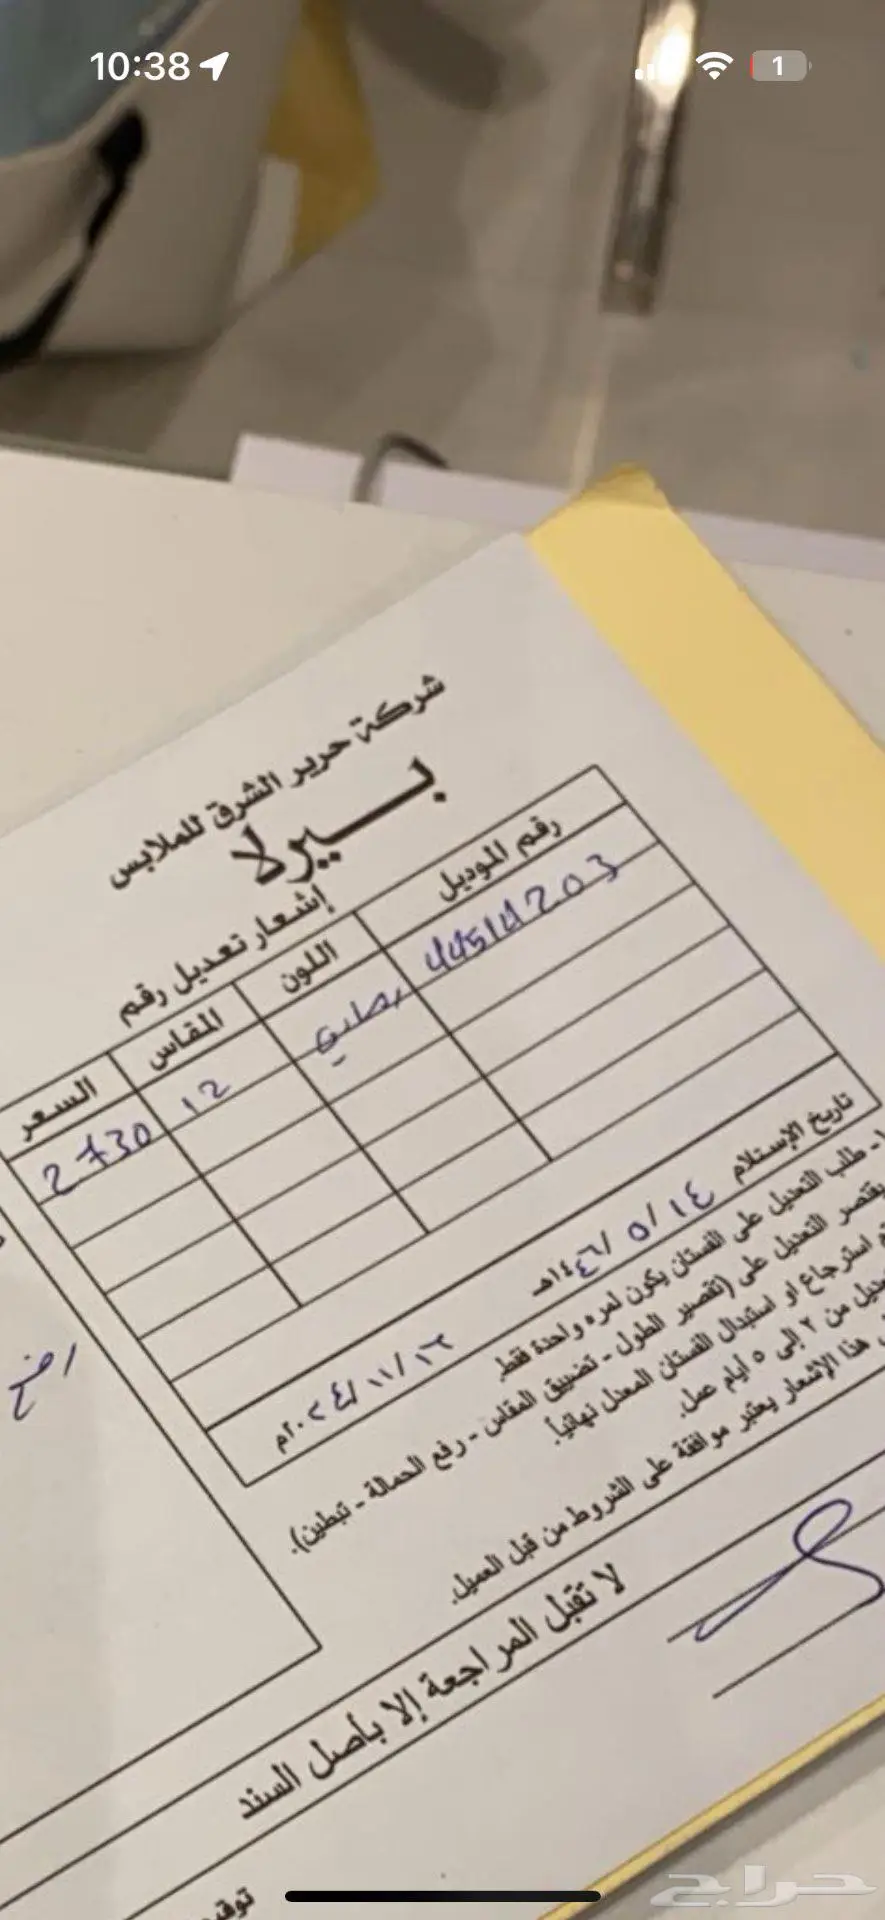 10:38
1
شركة حرير الشرق للملابس
بيرلا
إشعار تعديل رقم
رقم الموديل اللون المقاس السعر
44514203 12 2730
تاريخ الإستلام ١٤ / ٥ / ١٤٤٦هـ
١٦ / ١١ / ٢٠٢٤م
١- طلب التعديل على الفستان يكون لمره واحدة فقط
يقتصر التعديل على (تقصير الطول - تضييق المقاس - رفع الحمالة - تبطين).
استرجاع او استبدال الفستان المعدل نهائياً.
من ٢ إلى ٥ أيام عمل.
هذا الإشعار يعتبر موافقة على الشروط من قبل العميل.
لا تقبل المراجعة إلا بأصل السند
حراج